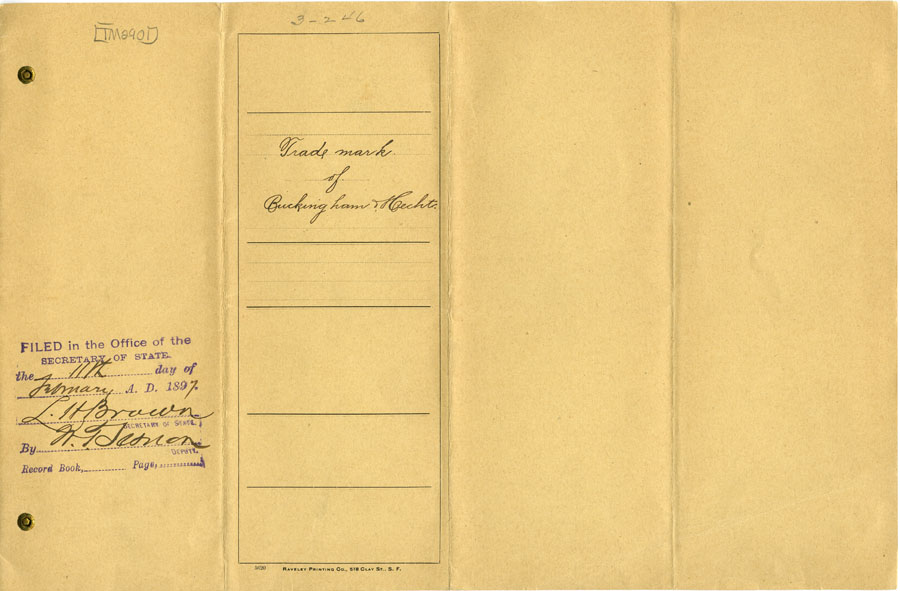 3-2-46
[TM8901]
Trade mark
of
Buckingham & Hecht.
FILED in the Office of the
SECRETARY OF STATE.
the 11th day of
February A. D. 1897.
L. H. Brown
SECRETARY OF STATE.
By
DEPUTY.
Record Book, Page,
RAVELEY PRINTING CO., 518 CLAY ST., S. F.